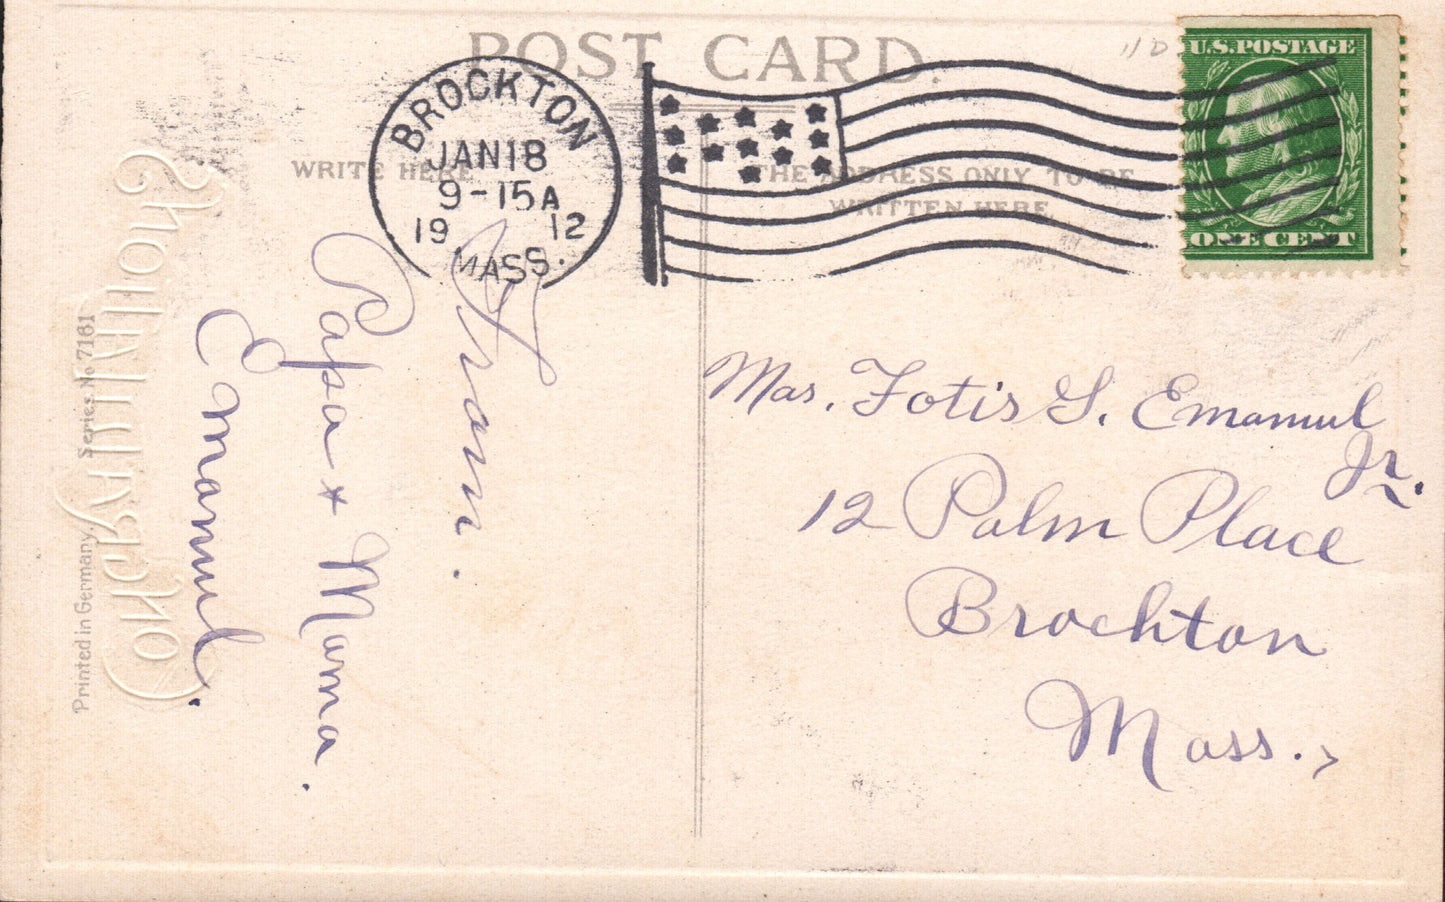 POST CARD.
11 D
U.S. POSTAGE
ONE CENT
BROCKTON
JAN 18
9-15A
1912
MASS.
WRITE HERE
THE ADDRESS ONLY TO BE
WRITTEN HERE.
From.
Papa & Mama.
Emanuel.
Mas. Fotis S. Emanuel
Jr.
12 Palm Place
Brockton
Mass.,
Series No 7161
Printed in Germany